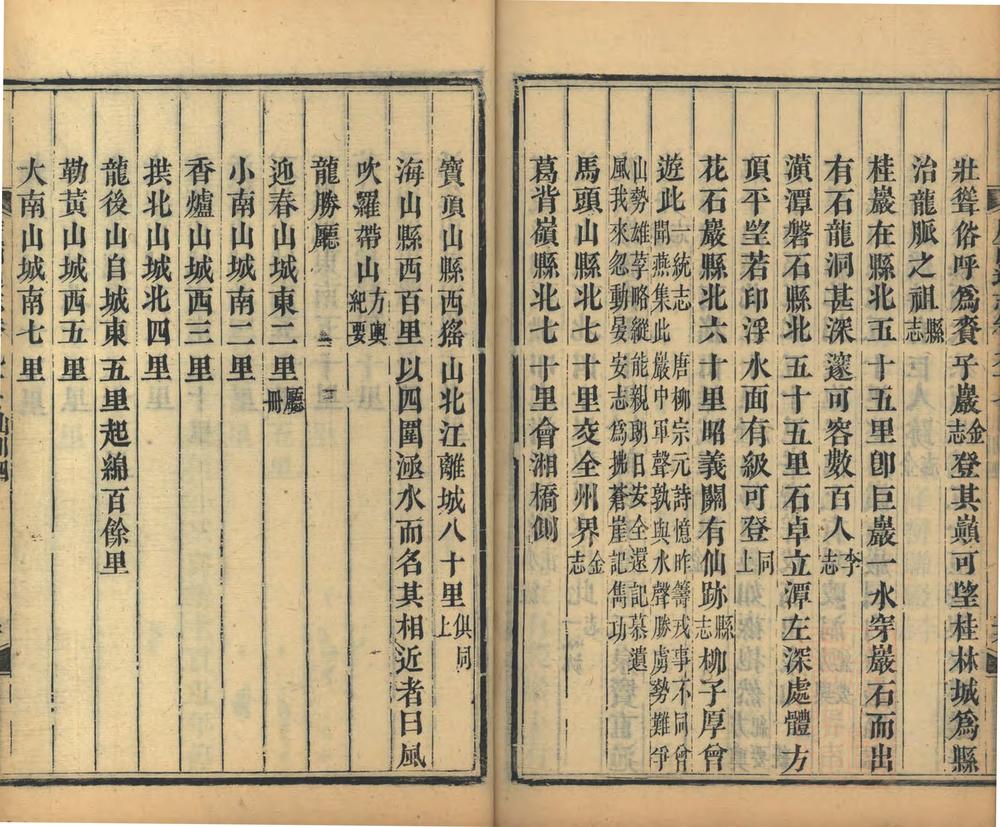 壯聳俗呼爲賚乎巖金志登其巔可望桂林城爲縣
治龍脈之祖縣志
桂巖在縣北五十五里卽巨巖一水穿巖石而出
有石龍洞甚深邃可容數百人李志
濱潭磐石縣北五十五里石卓立潭左深處體方
頂平望若印浮水面有級可登同上
花石巖縣北六十里昭義關有仙跡縣志柳子厚曾
遊此一統志 唐柳宗元詩憶昨籌戎事不同曾
間燕集此巖中軍聲孰與水聲勝虜勢難爭
山勢雄莩略縱能親翊日安全還記慕遺
風我來忽動晏安志爲拂蒼崖記雋功
馬頭山縣北七十里交全州界金志
葛背嶺縣北七十里會湘橋側
寶頂山縣西猺山北江離城八十里俱同上
海山縣西百里以四圍涵水而名其相近者曰風
吹羅帶山方輿紀要
龍勝廳
迎春山城東二里廳冊
小南山城南二里
香爐山城西三里
拱北山城北四里
龍後山自城東五里起綿百餘里
勒黃山城西五里
大南山城南七里